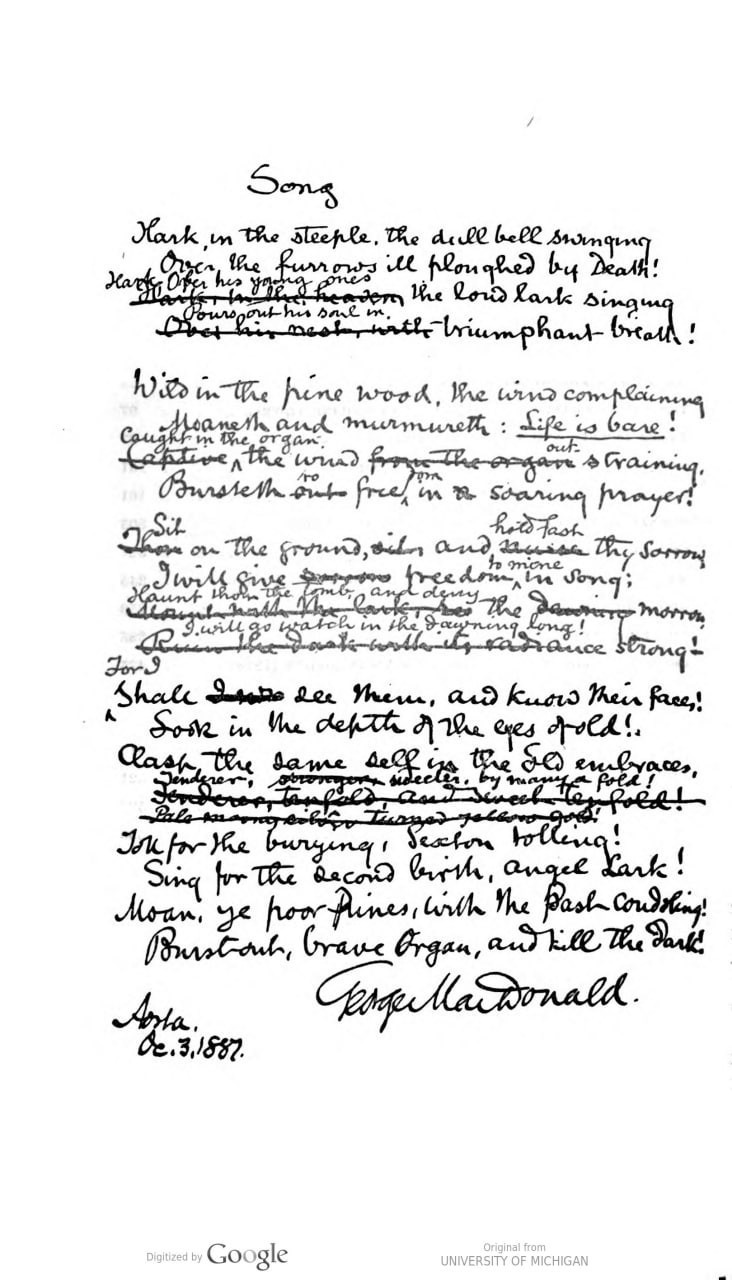 Song
Hark, in the steeple, the dull bell swinging
Over the furrows ill ploughed by Death!
Hark, Over his young ones
Hark, in the heaven, the loud lark singing
Pours out his soul in
Over his nest, with triumphant breath!
Wild in the pine wood, the wind complaining
Moaneth and murmureth: Life is bare!
Caught in the organ
Captive, the wind from the organ out straining,
Bursteth out so free, from in a soaring prayer!
Sit hold fast
Thou on the ground, and thy sorrow,
to mine
I will give sorrow freedom, in song;
Haunt thou the tomb, and dewy
Mount with the lark, the dawning morrow,
I will go watch in the dawning long!
the dark with its radiance strong!
For I
Shall see them, and know their faces!
Look in the depth of the eyes of old!
Clasp the same self in the old embraces,
Tenderer, stronger, sweeter, by many a fold!
Tenderer, tenfold, and sweet tenfold!
turned yellow gold!
Toll for the burying, Sexton tolling!
Sing for the second birth, angel Lark!
Moan, ye poor Pines, with the Past condoling!
Burst out, brave Organ, and kill the Dark!
George MacDonald.
Aosta.
Oc. 3, 1887.
Digitized by Google
Original from
UNIVERSITY OF MICHIGAN